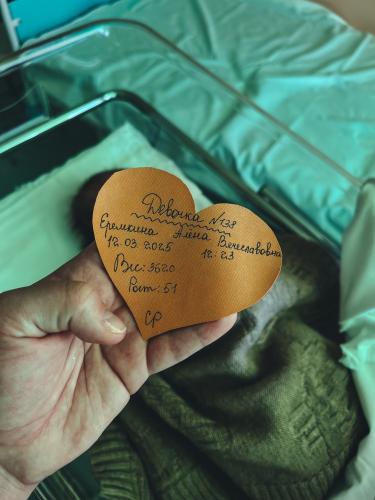 Девочка N138
Еремкина Алена Вячеславовна
12.03.2025 12:23
Вес: 3620
Рост: 51
СР